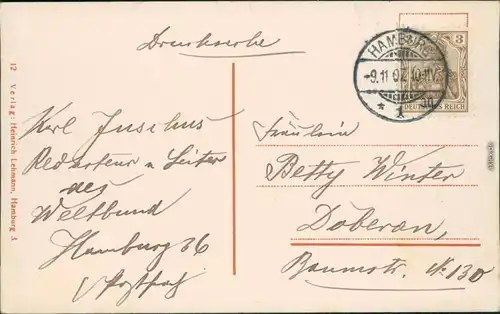 Drucksache
HAMBURG
-9.11.07. 10-11V.
* 1
3
DEUTSCHES REICH
12 Verlag: Heinrich Lehmann, Hamburg 4
Karl Juschus
Redakteur u Leiter
des
Weltbund
Hamburg 36
Postfach
Fräulein
Betty Winter
Doberan,
Baumstr. No. 130